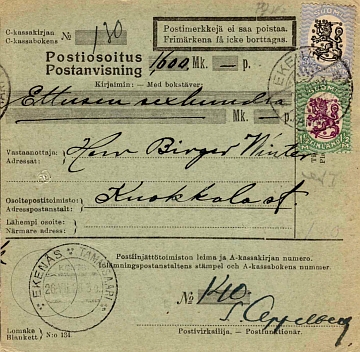 C-kassakirjan
C-kassabokens № 130
Postimerkkejä ei saa poistaa.
Frimärkena få icke borttagas.
Postiosoitus
Postanvisning 1600 Mk. — p.
Kirjaimin: – Med bokstäver:
Ettusen sexhundra
Mk. — p.
Vastaanottaja:
Adressat:
Herr Birger Winter
Osoitepostitoimisto:
Adresspostanstalt:
Kuokkala st
Lähempi osoite:
Närmare adress:
Postiinjättötoimiston leima ja A-kassakirjan numero.
Inlämningspostanstaltens stämpel och A-kassabokens nummer.
EKENÄS TAMMISAARI
№ 140
Appelberg
Lomake
Blankett N:o 134.
Postivirkailija. – Postfunktionär.
SUOMI
FINLAND
EKENÄS